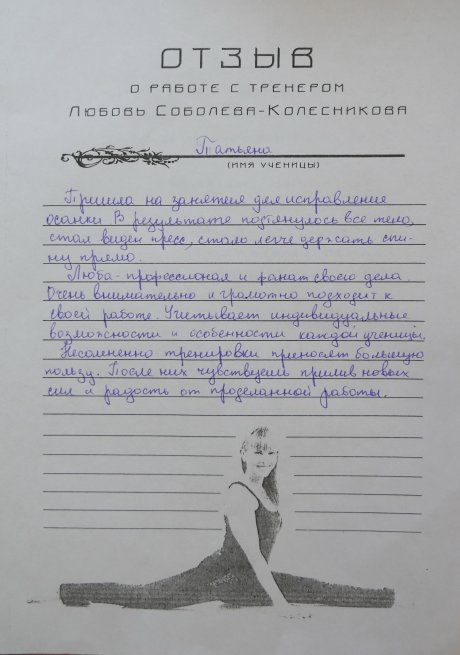 ОТЗЫВ
О РАБОТЕ С ТРЕНЕРОМ
ЛЮБОВЬ СОБОЛЕВА-КОЛЕСНИКОВА
Татьяна
(ИМЯ УЧЕНИЦЫ)
Пришла на занятия для исправления
осанки. В результате подтянулось все тело,
стал виден пресс, стало легче держать спи-
ну прямо.
Люба - профессионал и фанат своего дела.
Очень внимательно и грамотно подходит к
своей работе. Учитывает индивидуальные
возможности и особенности каждой ученицы.
Несомненно тренировки приносят большую
пользу. После них чувствуешь прилив новых
сил и радость от проделанной работы.